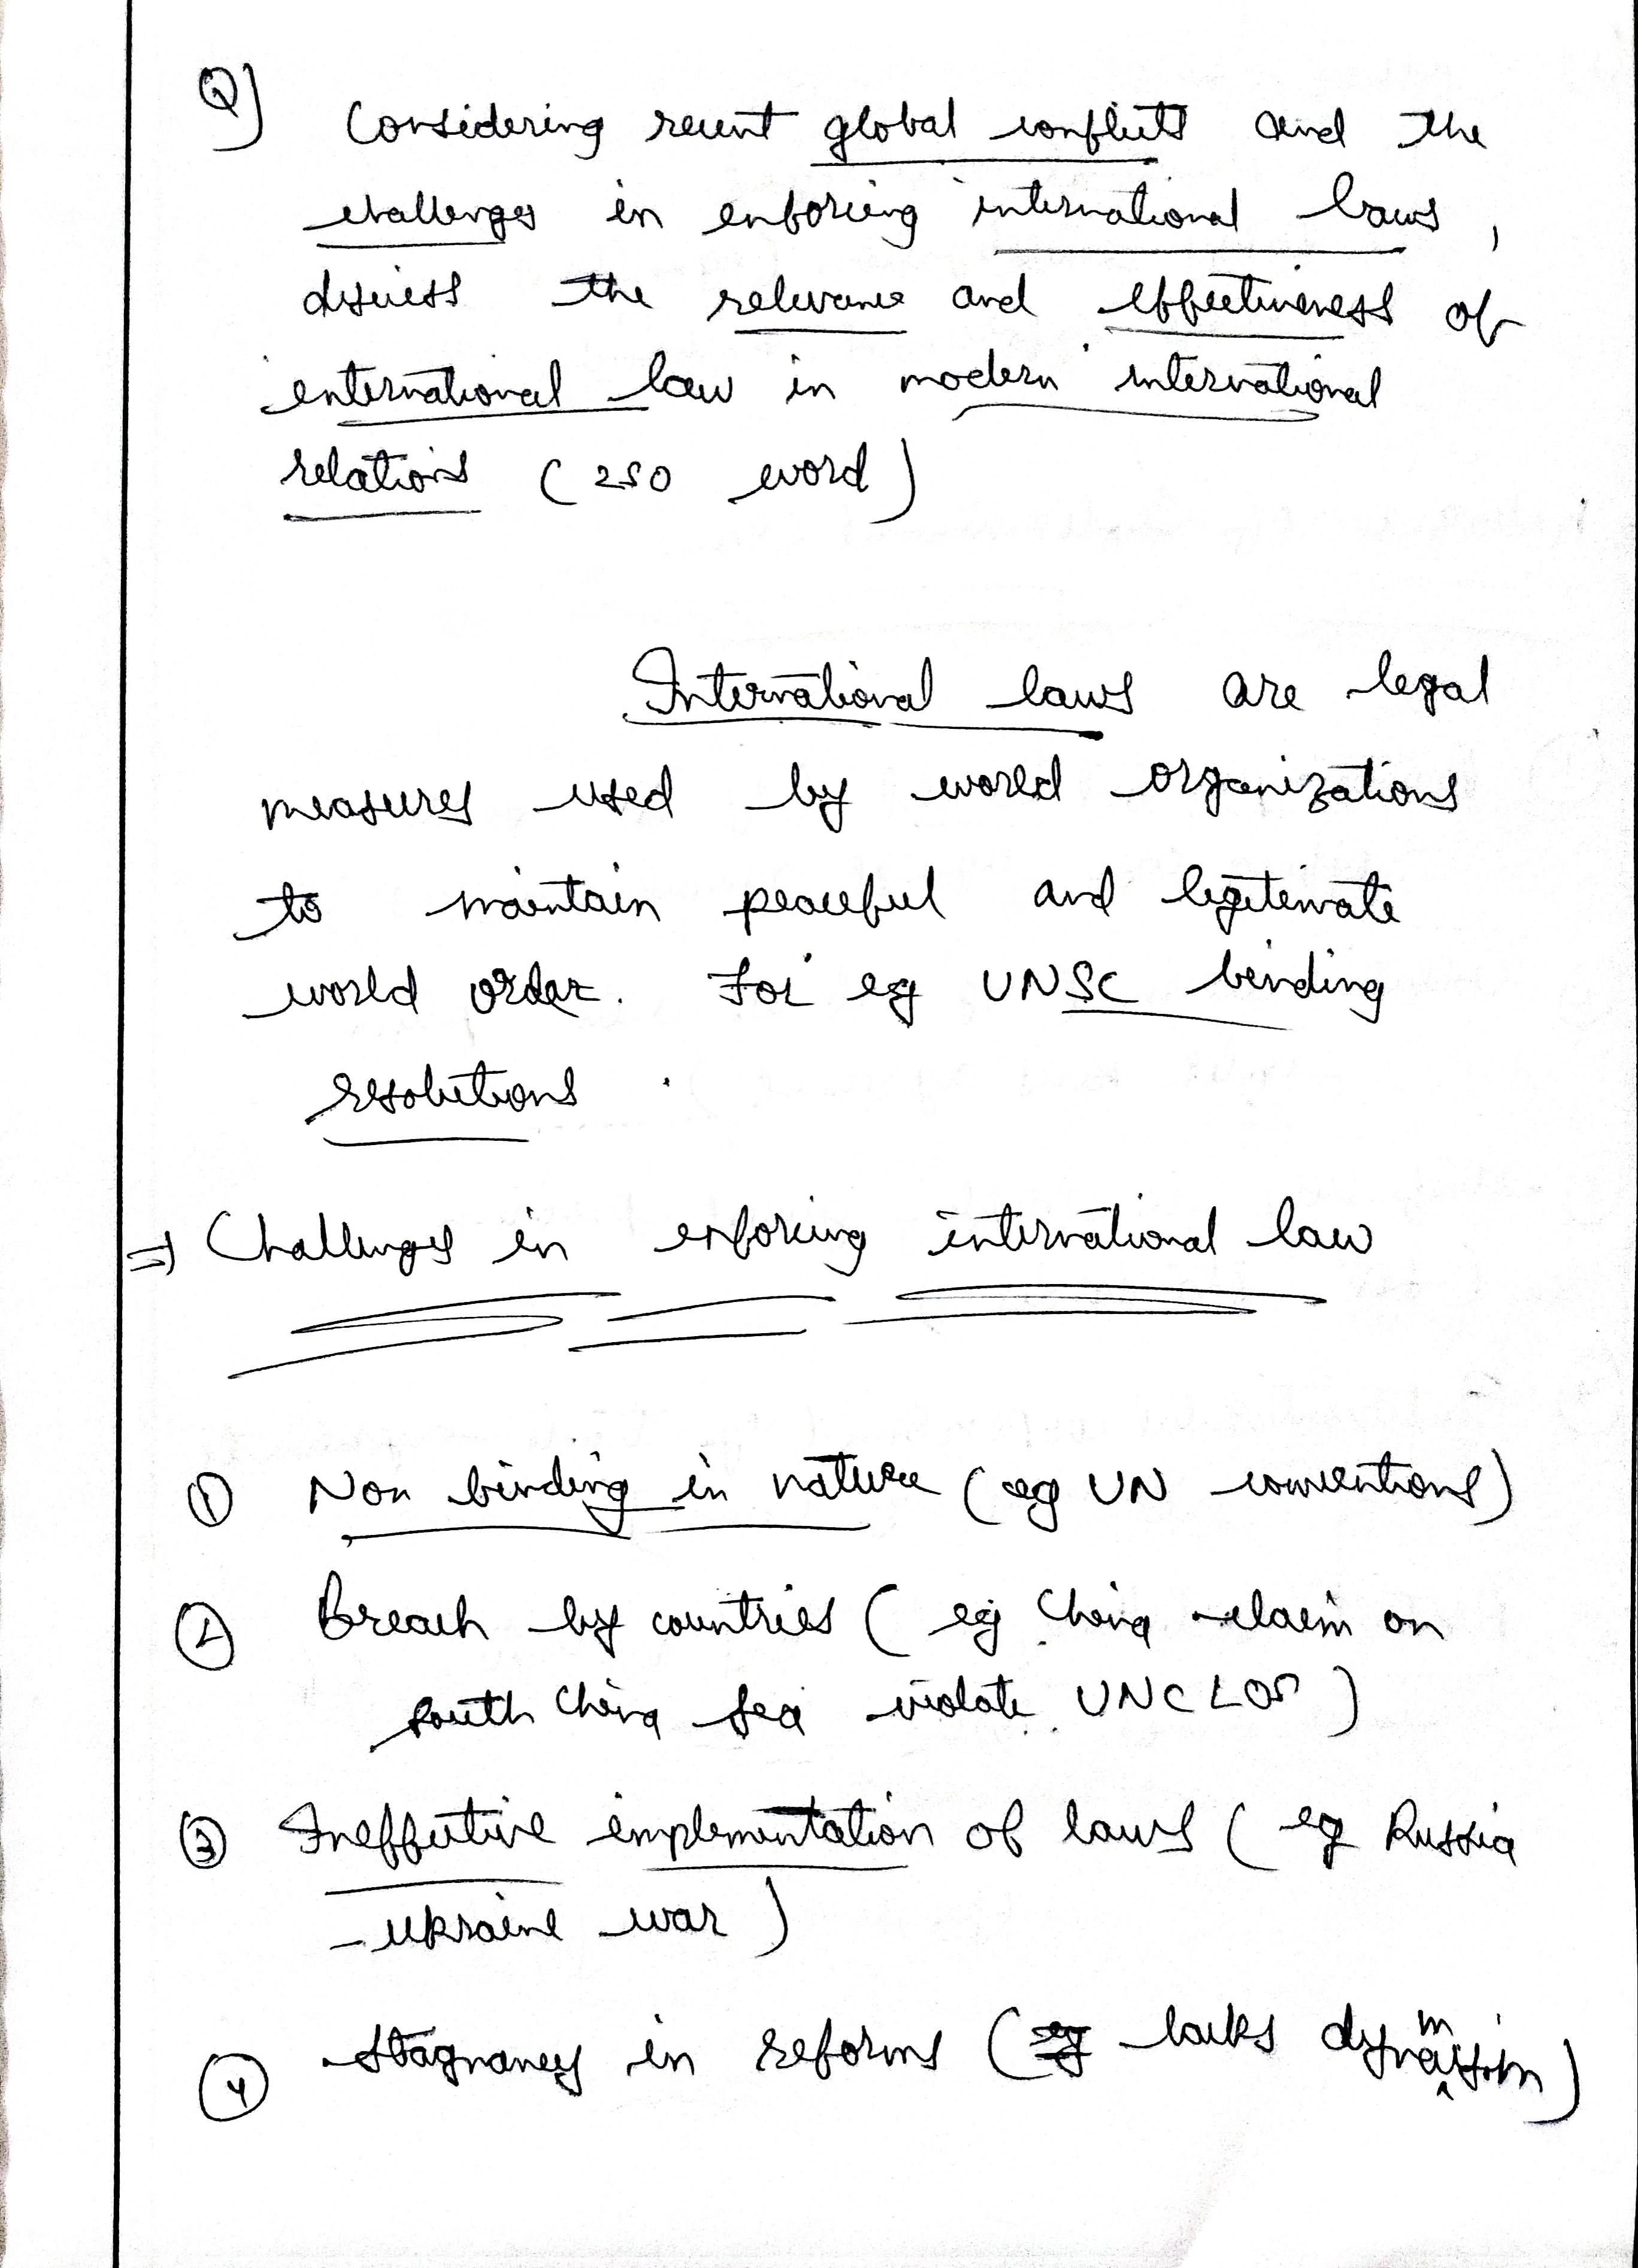 Q) Considering recent global conflicts and the
challenges in enforcing international laws,
discuss the relevance and effectiveness of
international law in modern international
relations (250 word)
International laws are legal
measures used by world organizations
to maintain peaceful and legitimate
world order. For eg UNSC binding
resolutions.
⇒ Challenges in enforcing international law
① Non binding in nature (eg UN conventions)
② Breach by countries (eg China claim on
south China sea violate UNCLOS)
③ Ineffective implementation of laws (eg Russia
-Ukraine war)
④ Stagnancy in reforms (lacks dynamism)